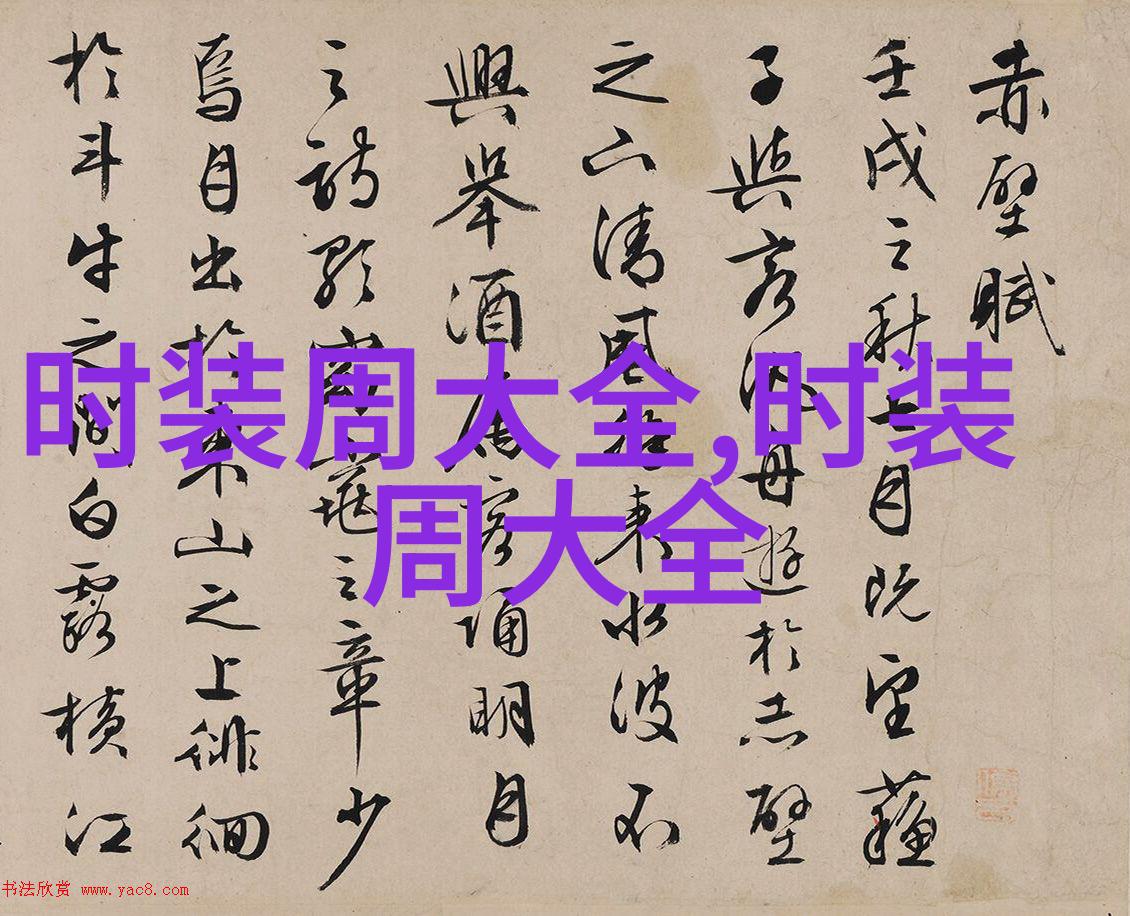 赤壁賦
壬戌之秋七月既望蘓
子與客泛舟遊於赤壁
之下清風徐來水波不
興舉酒屬客誦明月
之詩歌窈窕之章少
焉月出於東山之上徘徊
於斗牛之間白露橫江
时装周大全,时装
周大全
书法欣赏 www.yac8.com